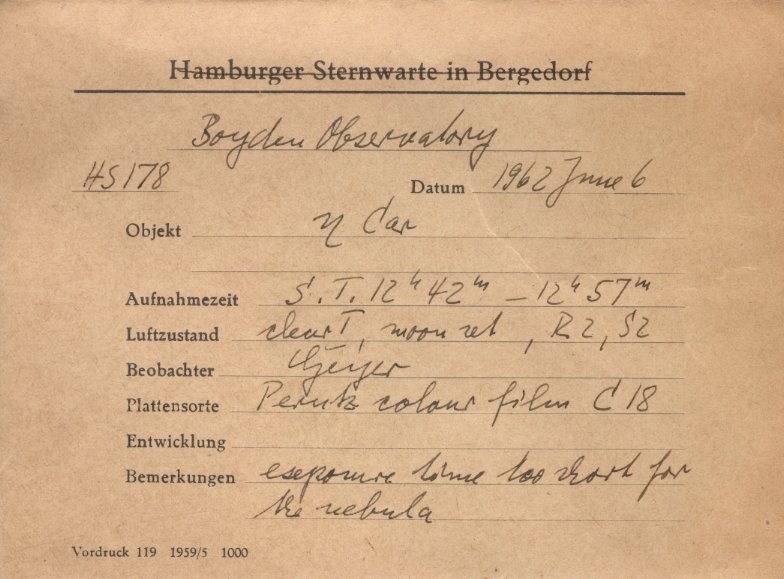 Hamburger Sternwarte in Bergedorf
Boyden Observatory
HS 178
Datum 1962 June 6
Objekt η Car
Aufnahmezeit S.T. 12ʰ 42ᵐ – 12ʰ 57ᵐ
Luftzustand clear I, moon set, R2, S2
Beobachter Geyer
Plattensorte Perutz colour film C 18
Entwicklung
Bemerkungen exposure time too short for
the nebula
Vordruck 119 1959/5 1000